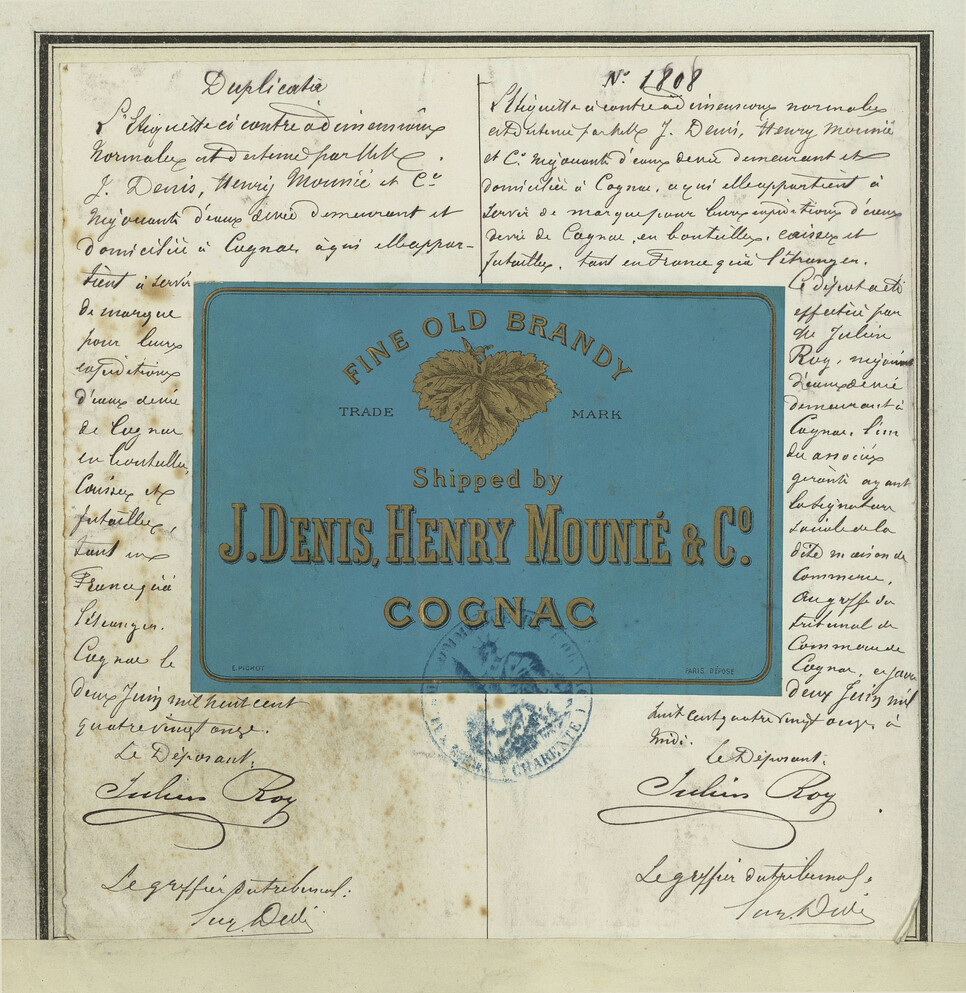 Duplicata
L'Etiquette ci contre à dimensions
normales est destinée par M.M.
J. Denis, Henry Mounié et Cie
négociants d'eaux de vie demeurant et
domiciliés à Cognac, à qui elle appar-
tient à servir
de marque
pour leurs
expéditions
d'eaux de vie
de Cognac
en bouteilles,
Caisses et
futailles,
tant en
France qu'à
l'étranger.
Cognac le
deux Juin mil huit cent
quatre vingt onze.
Le Déposant:
Julien Roy
Le greffier du tribunal:
No 1808
L'Etiquette ci contre à dimensions normales
est destinée par M.M. J. Denis, Henry Mounié
et Cie négociants d'eaux de vie demeurant et
domiciliés à Cognac, à qui elle appartient à
servir de marque pour leurs expéditions d'eaux
de vie de Cognac, en bouteilles, caisses et
futailles, tant en France qu'à l'étranger.
Ce dépôt a été
effectué par
Julien
Roy, négociant
d'eaux de vie
demeurant à
Cognac, l'un
des associés
gérants ayant
la signature
sociale de la
dite maison de
Commerce,
au greffe du
tribunal de
Commerce de
Cognac, ce jour
deux Juin mil
huit cent quatre vingt onze, à
midi.
Le Déposant:
Julien Roy
Le greffier du tribunal:
FINE OLD BRANDY
TRADE MARK
Shipped by
J. DENIS, HENRY MOUNIÉ & Co.
COGNAC
E. PICHOT PARIS DÉPOSÉ
CHARENTE